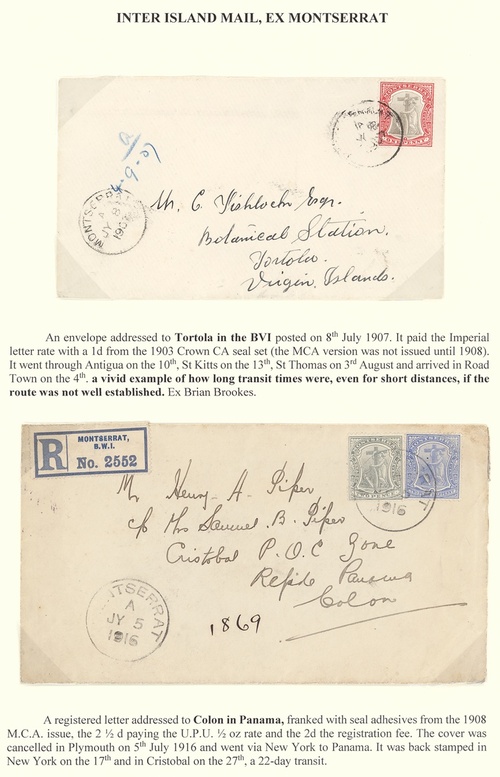 INTER ISLAND MAIL, EX MONTSERRAT
MONTSERRAT
ONE PENNY
4-9-07
MONTSERRAT
A
JY 8
190
Mr. C. Fishlock Esqr.
Botanical Station.
Tortola.
Virgin Islands.
An envelope addressed to Tortola in the BVI posted on 8th July 1907. It paid the Imperial
letter rate with a 1d from the 1903 Crown CA seal set (the MCA version was not issued until 1908).
It went through Antigua on the 10th, St Kitts on the 13th, St Thomas on 3rd August and arrived in Road
Town on the 4th. a vivid example of how long transit times were, even for short distances, if the
route was not well established. Ex Brian Brookes.
R
MONTSERRAT,
B.W.I.
No. 2552
MONTSERRAT
MONTSERRAT
1916
Mr Henry A. Piper
c/o Mrs Samuel B. Piper
Cristobal P.O.C Zone
Panama
Colon
1869
MONTSERRAT
A
JY 5
1916
A registered letter addressed to Colon in Panama, franked with seal adhesives from the 1908
M.C.A. issue, the 2 ½ d paying the U.P.U. ½ oz rate and the 2d the registration fee. The cover was
cancelled in Plymouth on 5th July 1916 and went via New York to Panama. It was back stamped in
New York on the 17th and in Cristobal on the 27th, a 22-day transit.